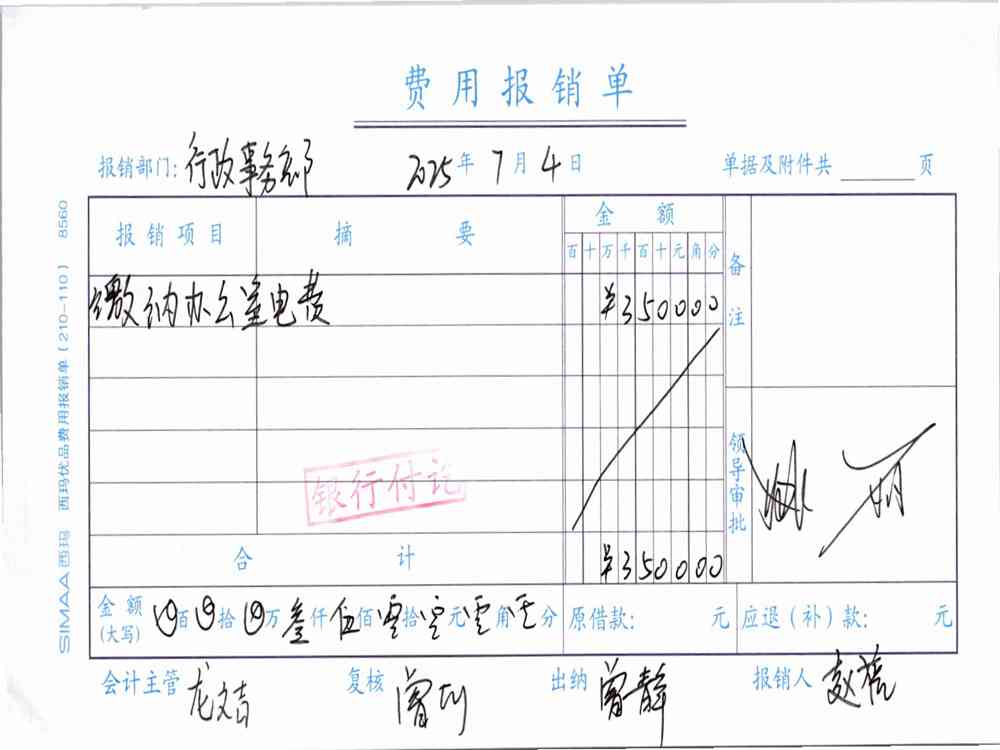 费用报销单
报销部门: 行政事务部 2025年7月4日 单据及附件共 页
报销项目 摘要 金额 备注
百十万千百十元角分
缴纳办公室电费 ¥350000
银行付讫
领导审批
合计 ¥350000
金额(大写) 百 拾 万叁仟伍佰零拾零元零角零分 原借款: 元 应退(补)款: 元
会计主管 龙文吉 复核 曾 出纳 曾静 报销人 赵
SIMAA西玛 西玛优品费用报销单(210-110) 8560